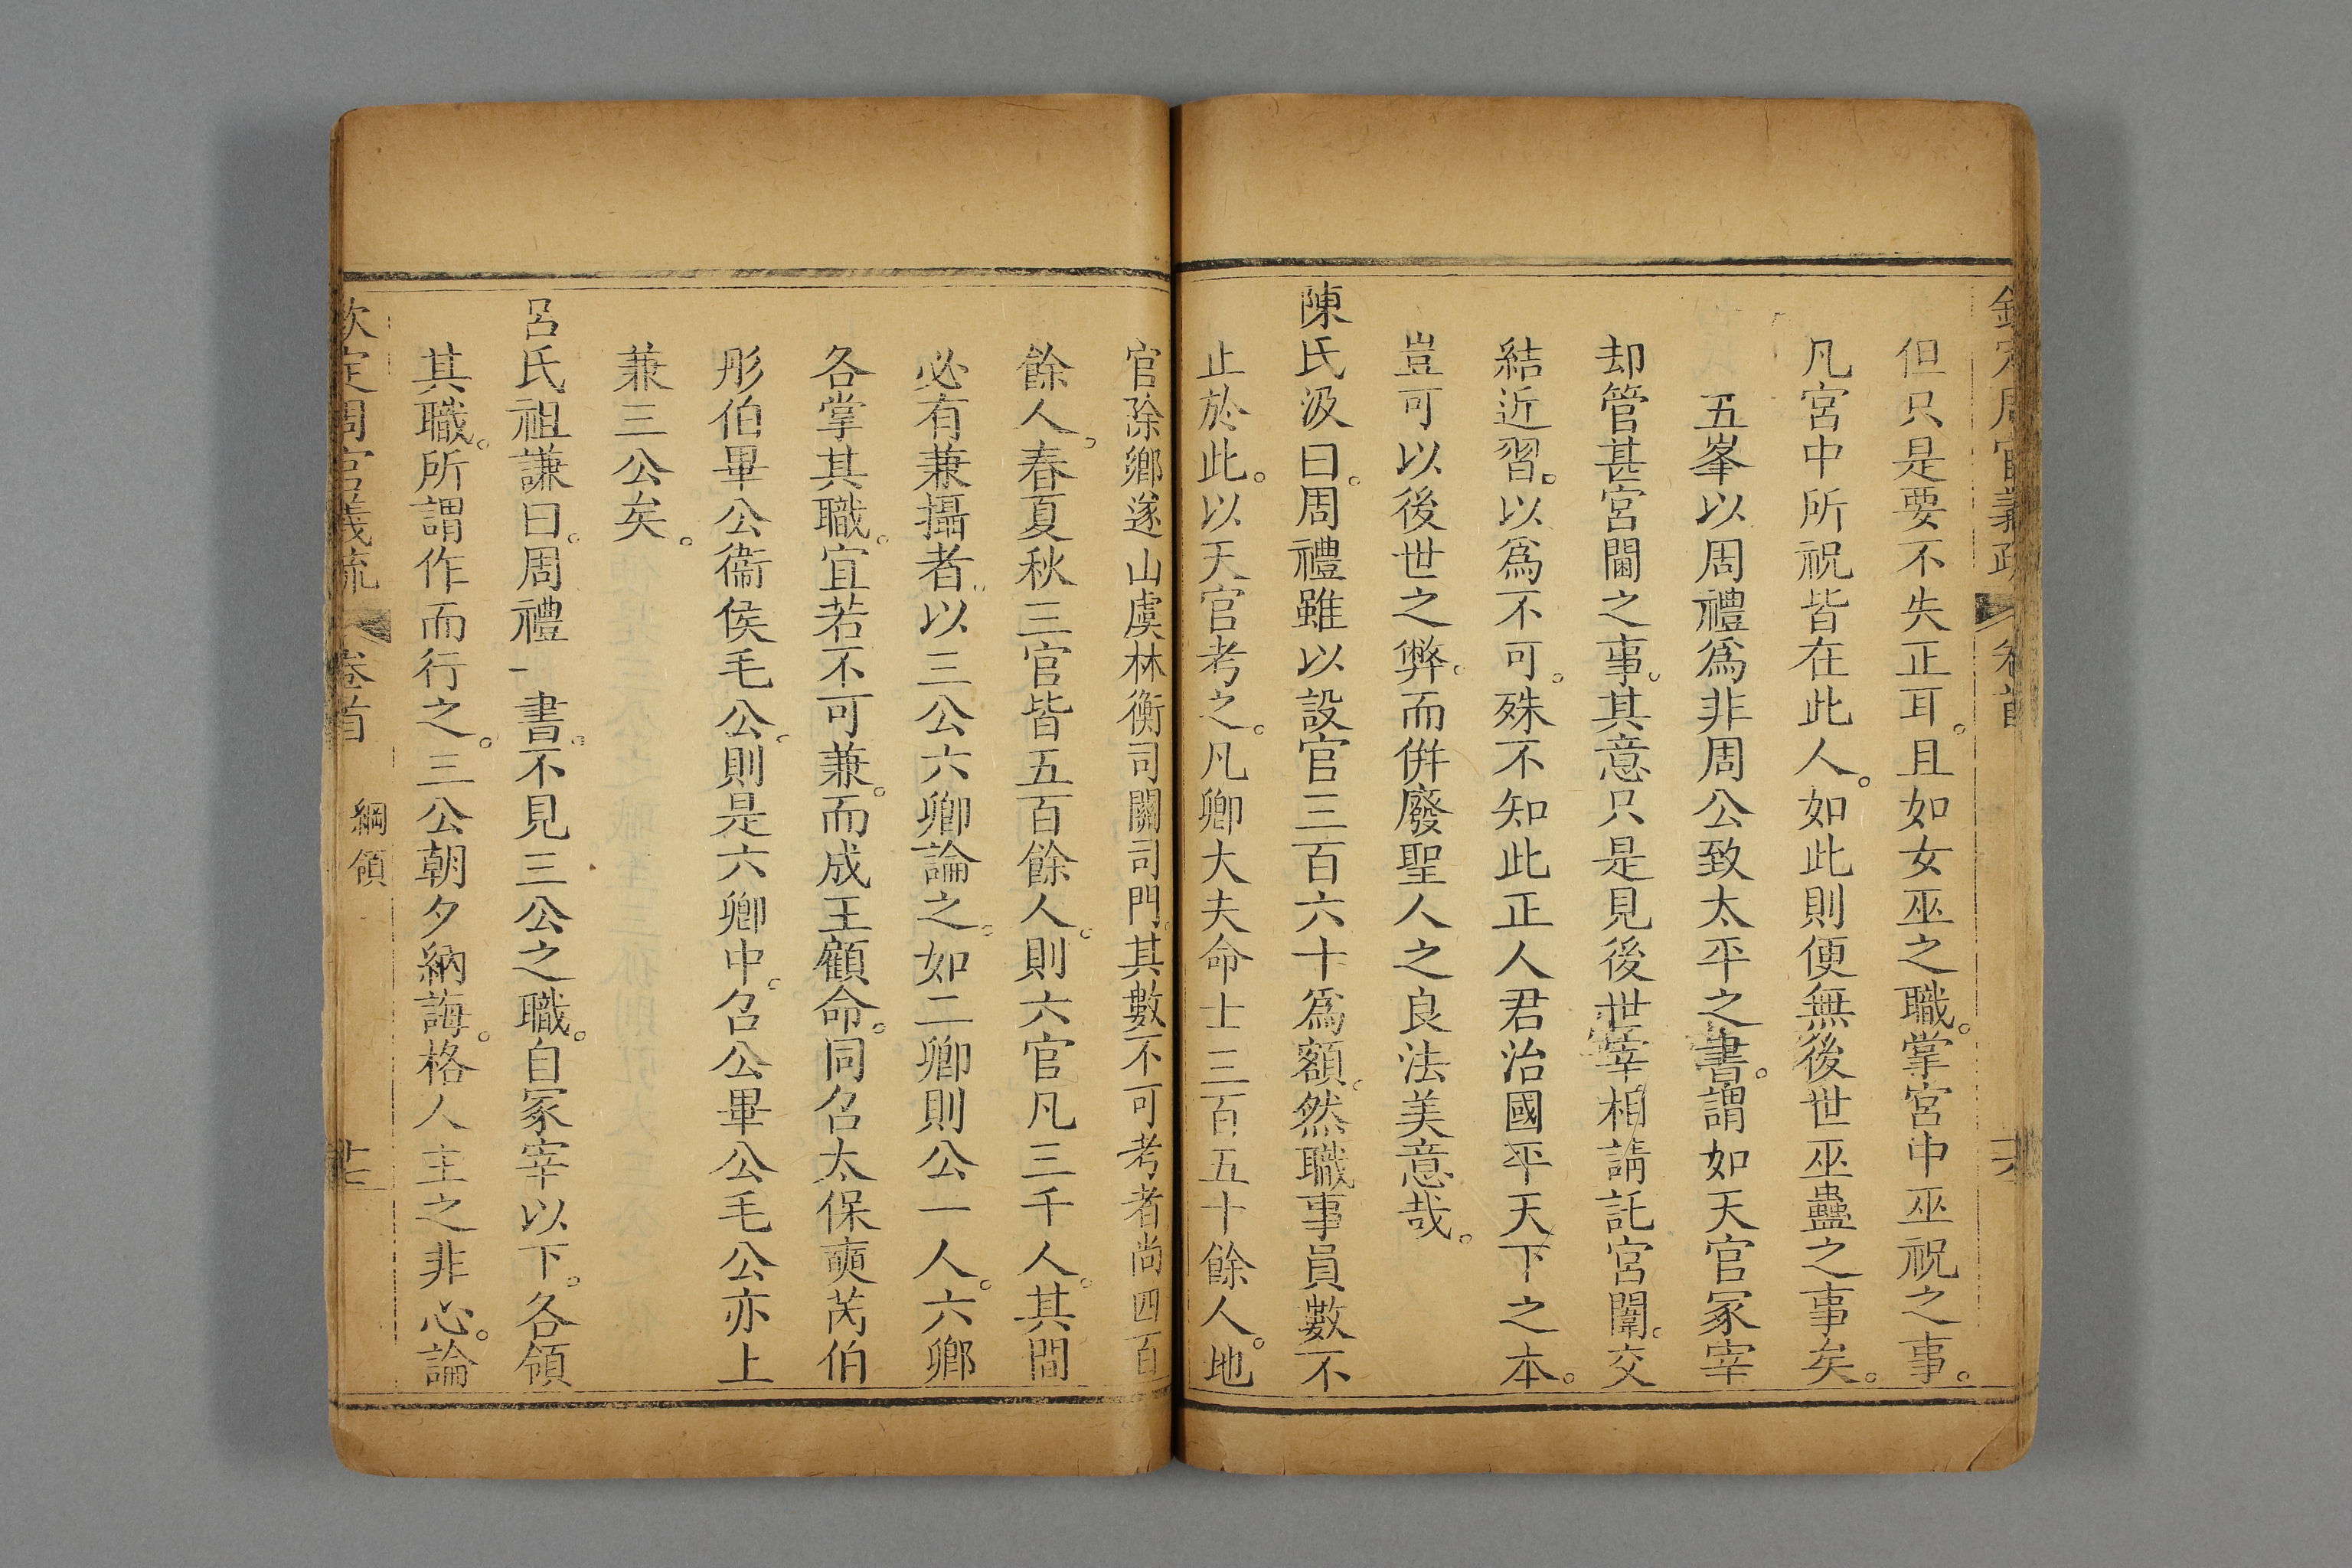 欽定周官義疏 卷首
但只是要不失正耳。且如女巫之職。掌宮中巫祝之事。
凡宮中所祝皆在此人。如此則便無後世巫蠱之事矣。
五峯以周禮爲非周公致太平之書。謂如天官冢宰
却管甚宮閫之事。其意只是見後世宰相請託宮闈。交
結近習。以爲不可。殊不知此正人君治國平天下之本。
豈可以後世之弊。而併廢聖人之良法美意哉。
陳氏汲曰。周禮雖以設官三百六十爲額。然職事員數不
止於此。以天官考之。凡卿大夫命士三百五十餘人。地
官除鄉遂山虞林衡司關司門。其數不可考者尚四百
餘人。春夏秋三官皆五百餘人。則六官凡三千人。其間
必有兼攝者。以三公六卿論之。如二卿則公一人。六鄉
各掌其職。宜若不可兼。而成王顧命。同召太保奭芮伯
彤伯畢公衞侯毛公。則是六卿中。召公畢公毛公亦上
兼三公矣。
呂氏祖謙曰。周禮一書。不見三公之職。自冢宰以下。各領
其職。所謂作而行之。三公朝夕納誨。格人主之非心。論
欽定周官義疏 卷首 綱領